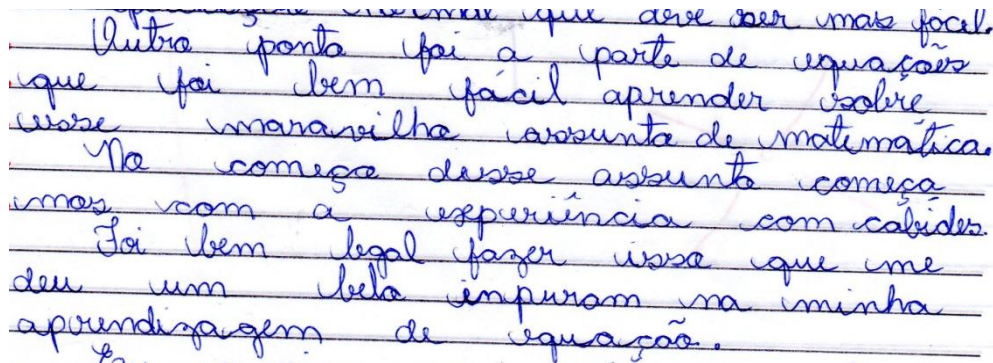 que deve ser mas focil.
Outro ponto foi a parte de equações
que foi bem fácil aprender sobre
esse maravilho assunto de matemática.
No começo desse assunto começa
mos com a experiência com cabides.
Foi bem legal fazer isso que me
deu um belo enpuram na minha
aprendizagem de equação.